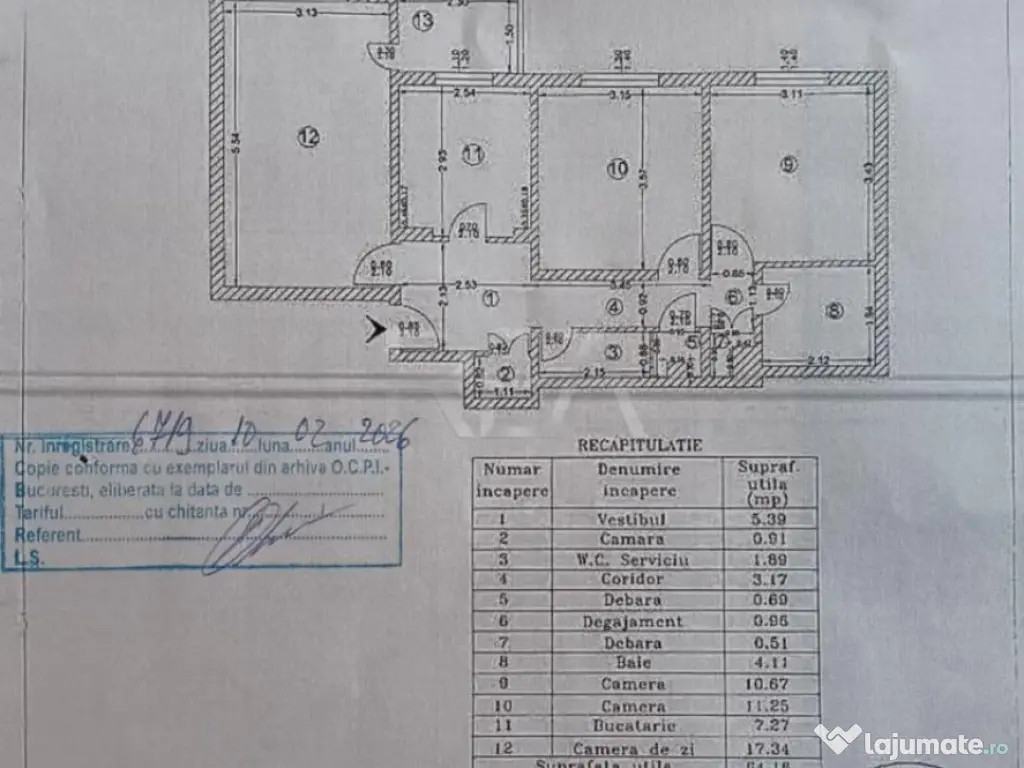 3.13
2.50
13
1.50
0.70
2.10
1.50
1.20
1.50
1.40
1.40
2.54
3.15
3.11
5.54
12
2.93
11
10
3.57
9
3.43
0.70
2.10
0.80
2.10
0.80
2.10
0.80
2.10
0.85
2.53
1
2.13
3.45
4
0.92
6
1.13
8
1.94
0.70
2.10
3
0.88
5
7
2
2.15
2.12
1.11
Nr. inregistrare 6719 ziua 10 luna 02 anul 2026
Copie conforma cu exemplarul din arhiva O.C.P.I.-
Bucuresti, eliberata la data de
Tariful cu chitanta nr. /
Referent
L.S.
RECAPITULATIE
Numar incapere Denumire incapere Supraf. utila (mp)
1 Vestibul 5.39
2 Camara 0.91
3 W.C. Serviciu 1.89
4 Coridor 3.17
5 Debara 0.69
6 Degajament 0.96
7 Debara 0.51
8 Baie 4.11
9 Camera 10.67
10 Camera 11.25
11 Bucatarie 7.27
12 Camera de zi 17.34
Suprafata utila 64.16
lajumate.ro